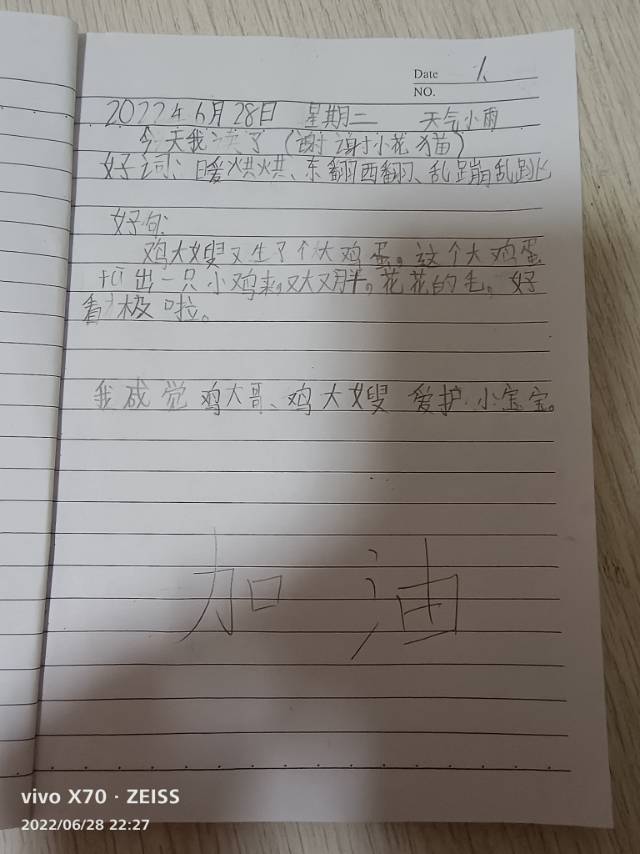 Date
NO.
2022年6月28日 星期二 天气小雨
今天我读了(谢谢小花猫)
好词:暖烘烘、东翻西翻、乱蹦乱跳
好句:
鸡大嫂又生了个大鸡蛋。这个大鸡蛋
出一只小鸡来,又大又胖。花花的毛。好
看极啦。
我感觉鸡大哥、鸡大嫂爱护小宝宝。
加油
vivo X70 · ZEISS
2022/06/28 22:27